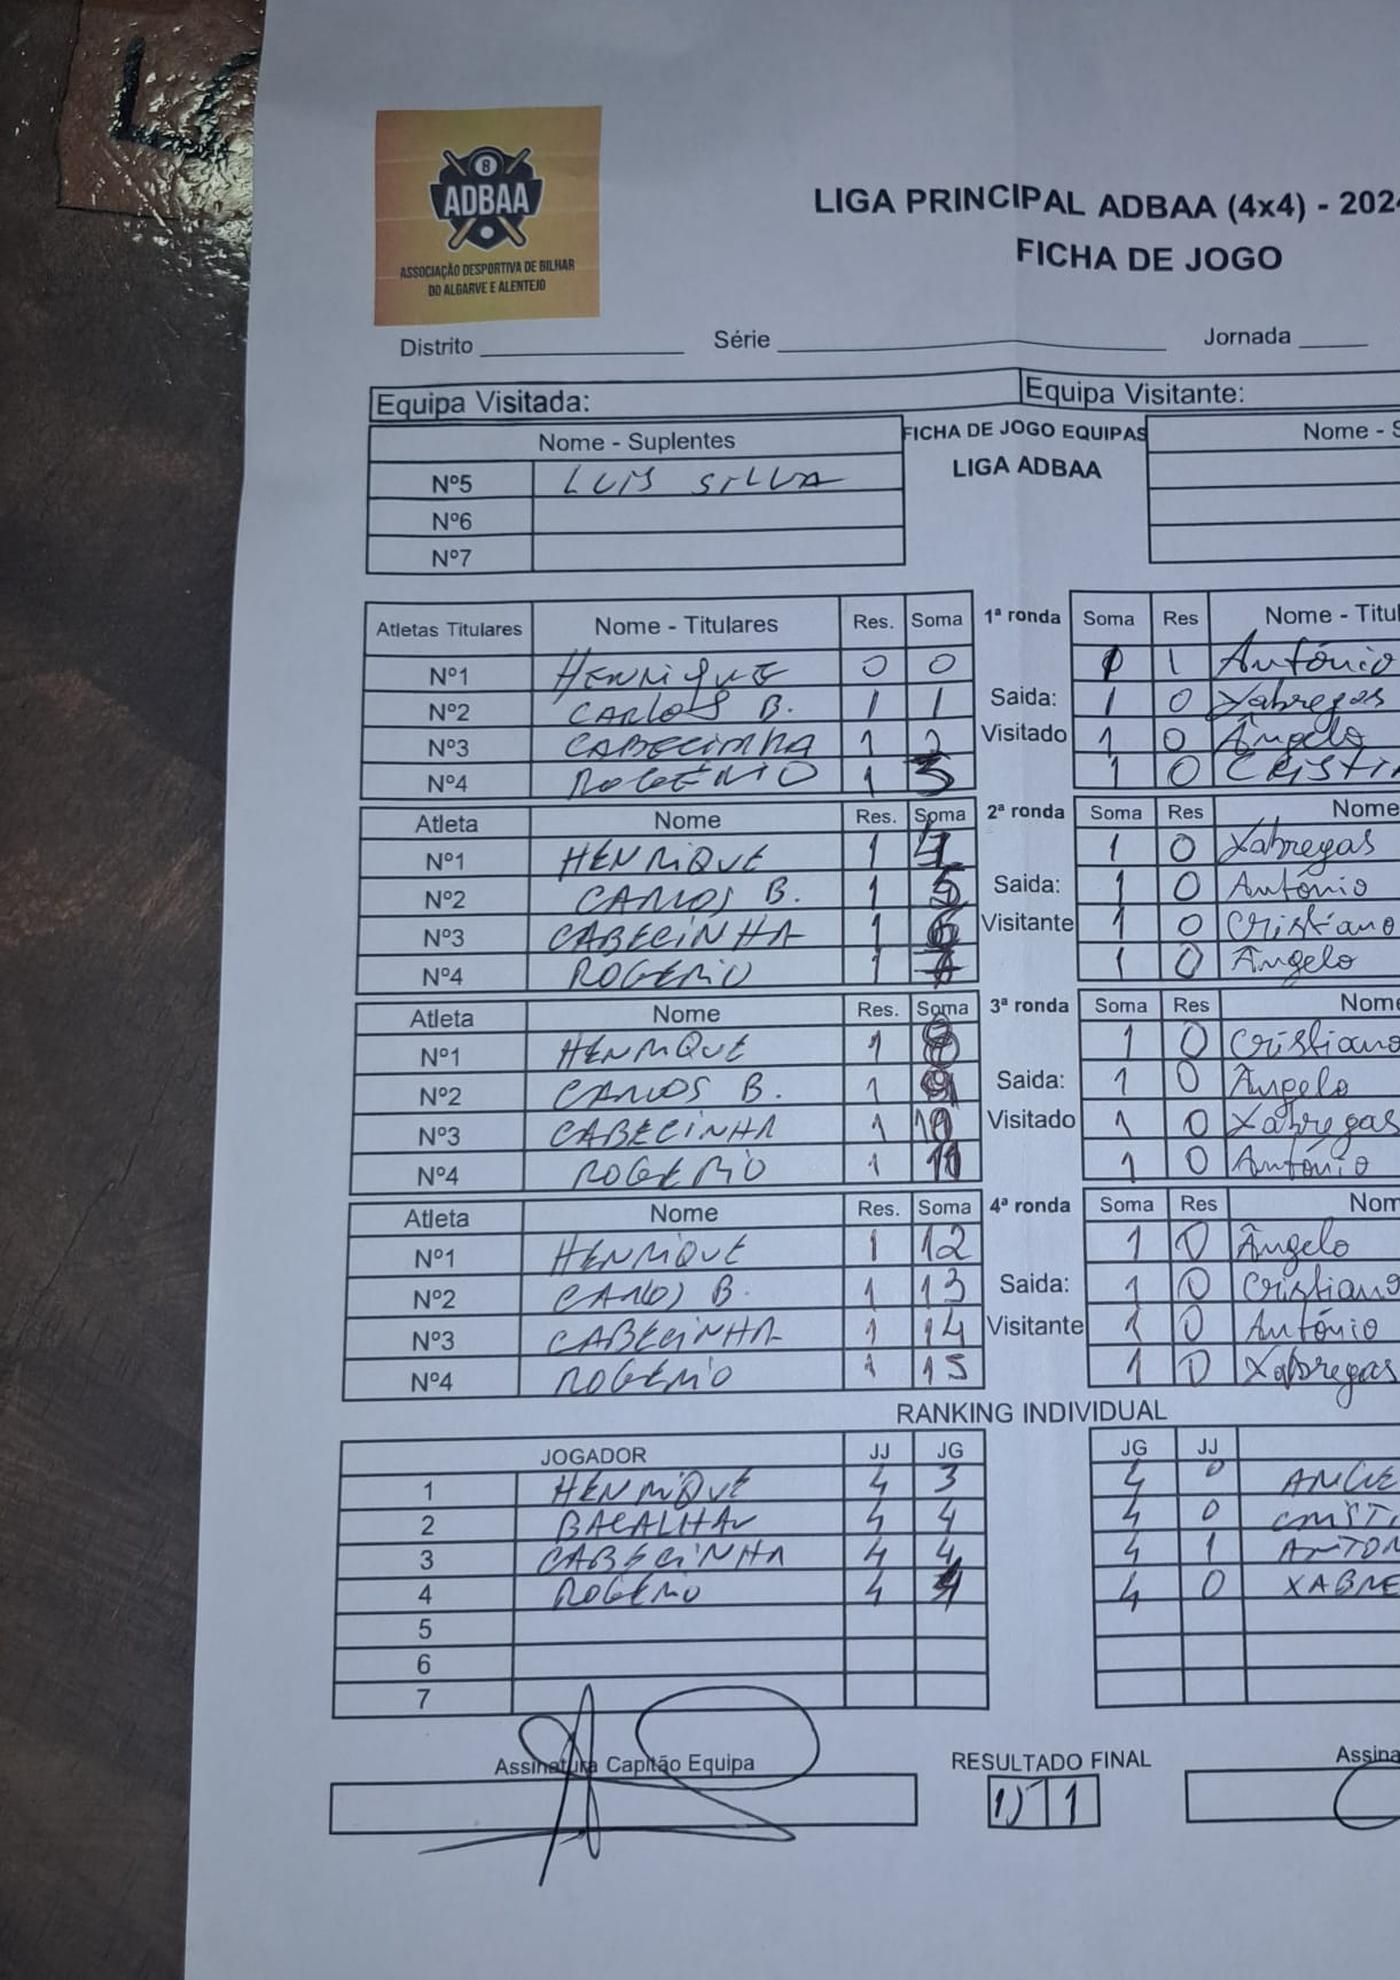 8
ADBAA
ASSOCIAÇÃO DESPORTIVA DE BILHAR
DO ALGARVE E ALENTEJO
LIGA PRINCIPAL ADBAA (4x4) - 2024
FICHA DE JOGO
Distrito Série Jornada
Equipa Visitada: Equipa Visitante:
Nome - Suplentes FICHA DE JOGO EQUIPAS Nome - S
LIGA ADBAA
Nº5 LUIS SILVA
Nº6
Nº7
Atletas Titulares Nome - Titulares Res. Soma 1ª ronda Soma Res Nome - Titul
Nº1 HENRIQUE 0 0 1 António
Nº2 CARLOS B. 1 1 Saida: 1 0 Xabregas
Nº3 CABECINHA 1 2 Visitado 1 0 Ângelo
Nº4 ROGÉRIO 1 3 1 0 CRISTI
Atleta Nome Res. Soma 2ª ronda Soma Res Nome
Nº1 HENRIQUE 1 4 1 0 Xabregas
Nº2 CARLOS B. 1 5 Saida: 1 0 António
Nº3 CABECINHA 1 6 Visitante 1 0 Cristiano
Nº4 ROGERIO 1 7 1 0 Ângelo
Atleta Nome Res. Soma 3ª ronda Soma Res Nome
Nº1 HENRIQUE 1 8 1 0 Cristiano
Nº2 CARLOS B. 1 9 Saida: 1 0 Ângelo
Nº3 CABECINHA 1 10 Visitado 1 0 Xabregas
Nº4 ROGERIO 1 11 1 0 António
Atleta Nome Res. Soma 4ª ronda Soma Res Nom
Nº1 HENRIQUE 1 12 1 0 Ângelo
Nº2 CARLOS B. 1 13 Saida: 1 0 Cristiano
Nº3 CABECINHA 1 14 Visitante 1 0 António
Nº4 ROGERIO 1 15 1 0 Xabregas
RANKING INDIVIDUAL
JOGADOR JJ JG JG JJ
1 HENRIQUE 4 3 4 0 ANGE
2 BACALHAU 4 4 4 0 CRISTI
3 CABECINHA 4 4 4 1 ANTON
4 ROGERIO 4 4 4 0 XABRE
5
6
7
Assinatura Capitão Equipa RESULTADO FINAL Assina
15 1